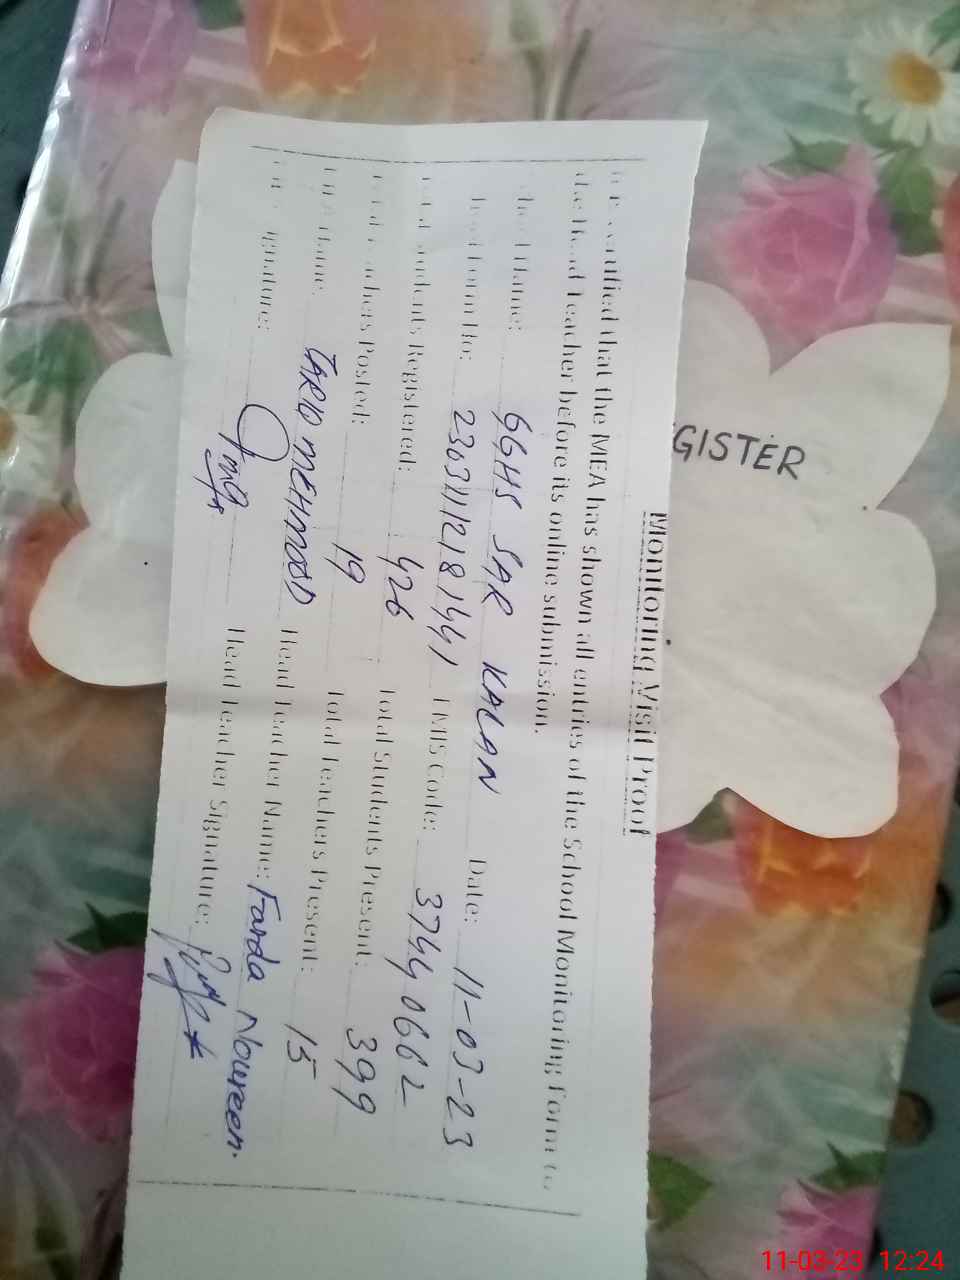 Monitoring Visit Proof
certified that the MEA has shown all entries of the School Monitoring Form to
the Head Teacher before its online submission.
Name: GGHS SAR KALAN Date: 11-03-23
Form No: EMIS Code: 37440662
Students Registered: 426 Total Students Present: 399
Teachers Posted: 19 Total Teachers Present: 15
Name: TARIQ MEHMOOD Head Teacher Name: Farda Noureen.
Signature: Head Teacher Signature:
GISTER
11-03-23 12:24